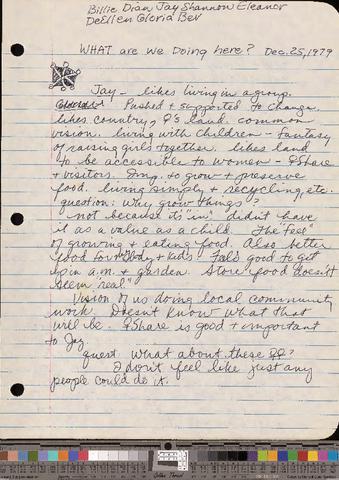 Billie Dian Jay Shannon Eleanor
DeEllen Gloria Bev
WHAT are we Doing here? Dec. 25, 1979
Jay - likes living in a group.
Pushed & supported to change.
likes country, ♀'s land. common
vision. living with children - fantasy
of raising girls together. likes land
to be accessible to women - ♀Share
& visitors. Img. to grow & preserve
food. living simply & recycling, etc.
question: why grow things?
not because it's "in" didn't have
it as a value as a child. The "feel"
of growing & eating food. Also better
food for body & kids. Feels good to get
up in a.m. & garden. Store food doesn't
seem "real"
Vision of us doing local community
work. Doesn't know what that
will be. ♀Share is good & important
to Jay
quest. What about these ♀♀?
I don't feel like just any
people could do it.